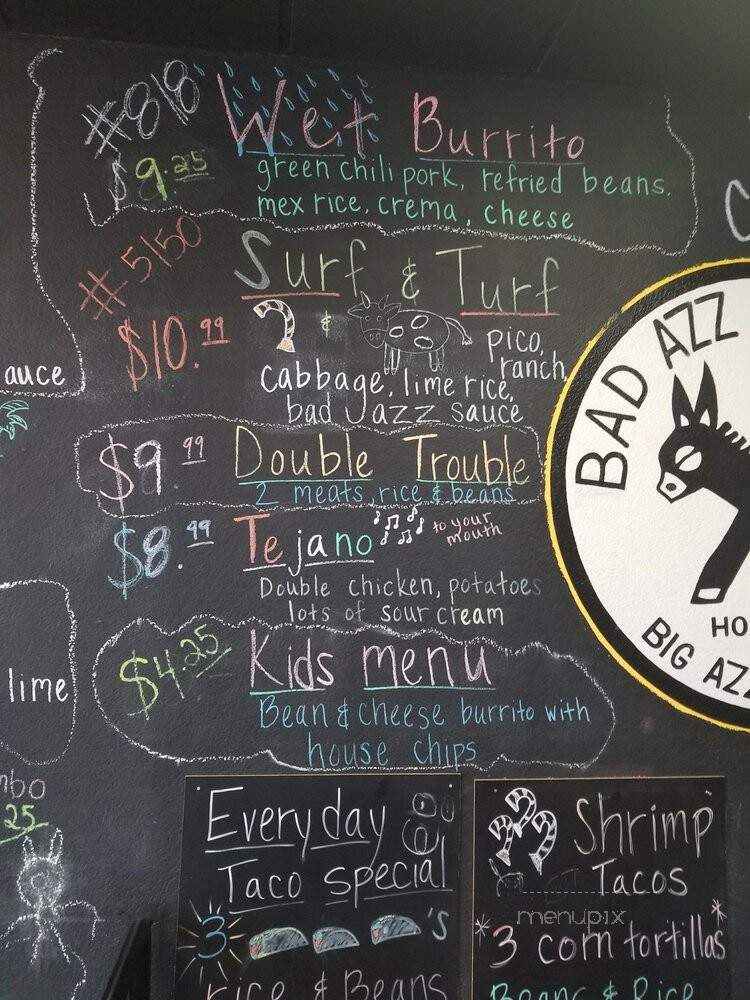 #818 Wet Burrito
$9.25 green chili pork, refried beans.
mex rice, crema, cheese
#5150 Surf & Turf
$10.99 &
pico,
ranch,
cabbage, lime rice,
bad Jazz sauce
auce
$9.99 Double Trouble
2 meats, rice & beans
$8.99 Tejano to your
mouth
Double chicken, potatoes
lots of sour cream
$4.25 Kids menu
Bean & Cheese burrito with
house chips
lime
mbo
25
BAD AZZ
HO
BIG AZ
Everyday
Taco special
3 's
rice & Beans
Shrimp
Tacos
menupix
*3 corn tortillas*
Beans & Rice